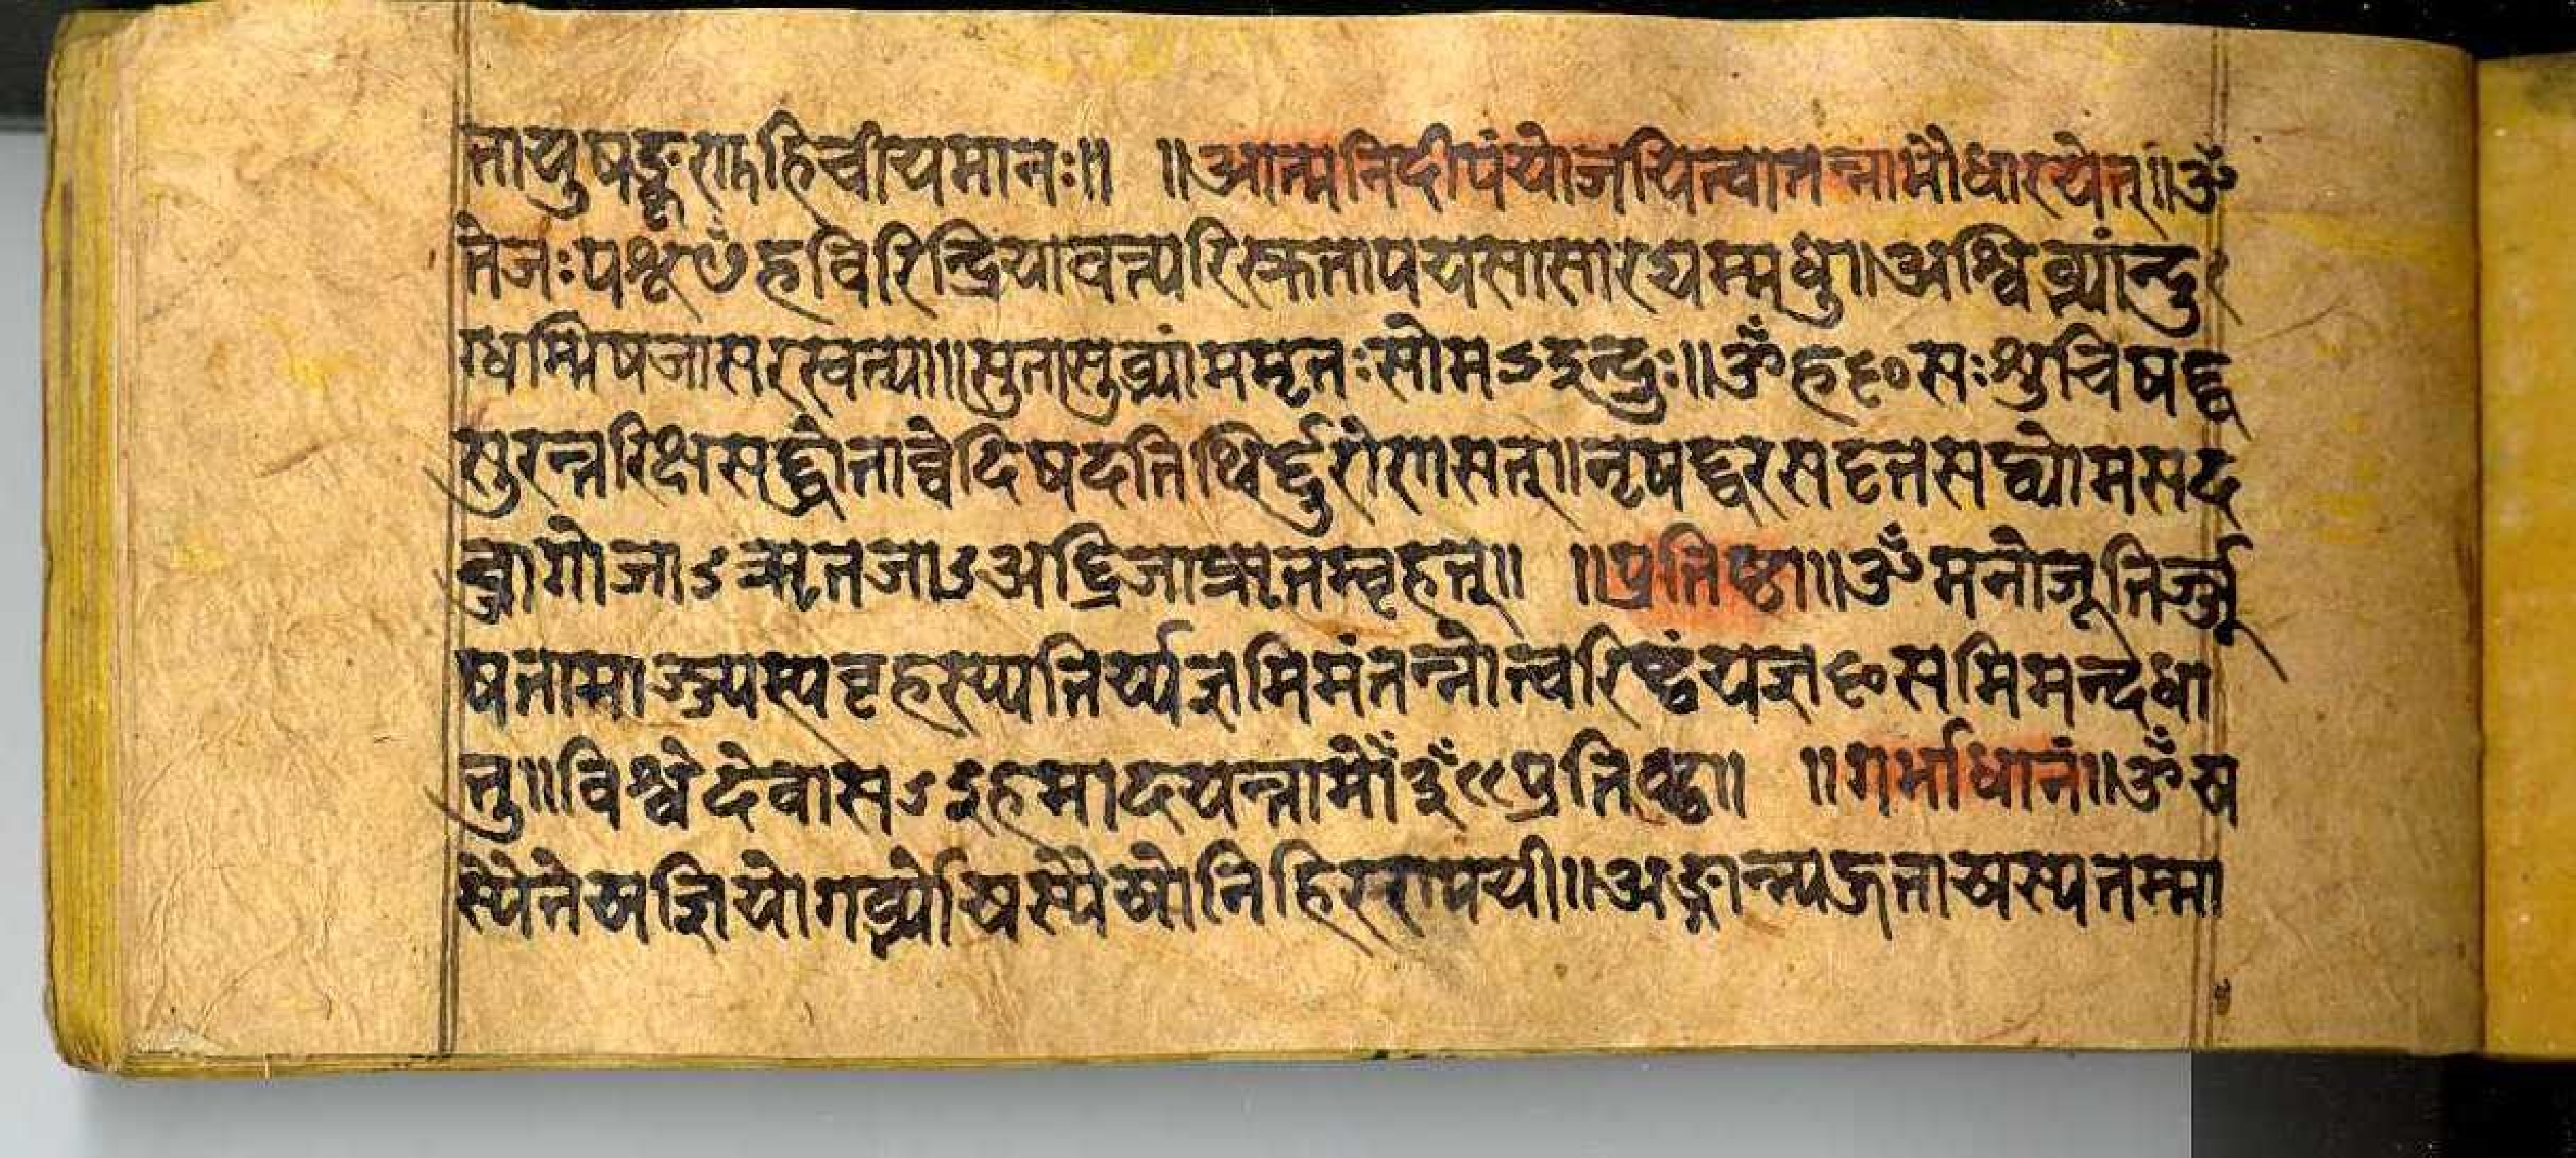 तायुषङ्कृणुहि चीयमानः॥ ॥आत्मनि दीपं योजयित्वा तन्नाग्नौ धारयेत्॥ ॐ
तेजः पशूꣳ हविरिन्द्रियावत्परिस्रुता पयसा सारघम्मधु॥ अश्विब्भ्यान्दु
ग्धम्भिषजा सरस्वत्या॥ सुतासुब्भ्यां ममृतः सोमऽइन्दुः॥ ॐ हꣳसः शुचिषद्व
सुरन्तरिक्षसद्धोता व्वेदिषदतिथिर्द्दुरोणसत्॥ नृषद्वरसदृतसद्व्योमसद
ब्जा गोजाऽऋतजाऽअद्रिजा ऋतम्बृहत्॥ ॥प्रतिष्ठा॥ ॐ मनो जूतिर्ज्जु
षतामाज्ज्यस्य बृहस्प्पतिर्य्यज्ञमिमं तन्नोत्वरिष्टं यज्ञꣳ समिमन्दधा
तु॥ विश्वे देवासऽइह मादयन्तामों३ प्रतिष्ठ॥ ॥गर्भाधानं॥ ॐ य
स्यै ते यज्ञियो गर्ब्भो यस्यै योनिर्हिरण्ययी॥ अङ्गान्न्यह्रुता यस्य तम्मा